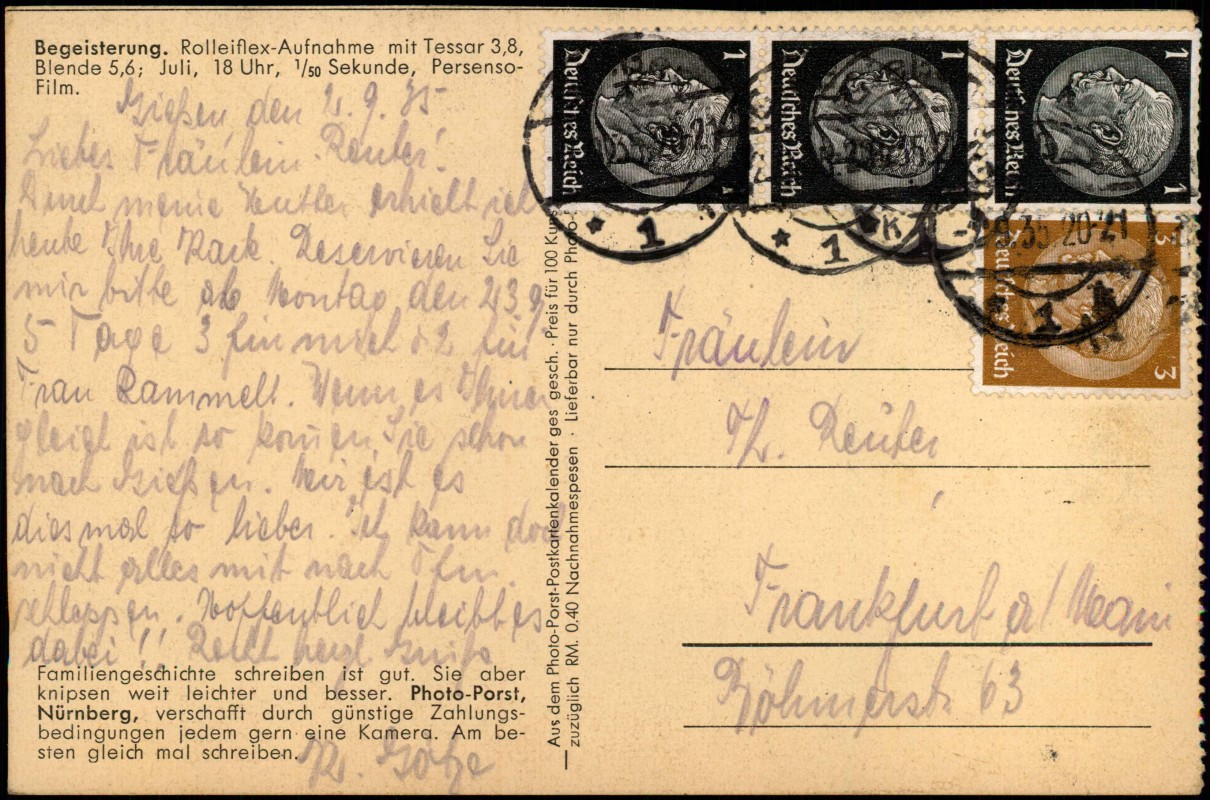 Begeisterung. Rolleiflex-Aufnahme mit Tessar 3,8,
Blende 5,6; Juli, 18 Uhr, 1/50 Sekunde, Persenso-
Film.
Gießen, den 2.9.35
Liebes Fräulein Reuter!
Durch meine Mutter erhielt ich
heute Ihre Karte. Reservieren Sie
mir bitte ab Montag den 23.9
5 Tage 3 für mich u 2 für
Frau Rammelt. Wenn es Ihnen
gleich ist so kommen Sie schon
nach Gießen. Mir ist es
diesmal so lieber. Ich kann doch
nicht alles mit nach Ffm.
schleppen. Hoffentlich bleibt es
dabei!! Recht herzl Grüße
Familiengeschichte schreiben ist gut. Sie aber
knipsen weit leichter und besser. Photo-Porst,
Nürnberg, verschafft durch günstige Zahlungs-
bedingungen jedem gern eine Kamera. Am be-
sten gleich mal schreiben.
Götze
Aus dem Photo-Porst-Postkartenkalender ges gesch. · Preis für 100 Kuns
zuzüglich RM. 0.40 Nachnahmespesen · Lieferbar nur durch Photo-
1 Deutsches Reich
1 Deutsches Reich 1
1 Deutsches Reich 1
3 Deutsches Reich 3
1
1
K
-2.9.35 20-21
1
Fräulein
Th. Reuter
Frankfurt a/Main
Böhmerstr 63